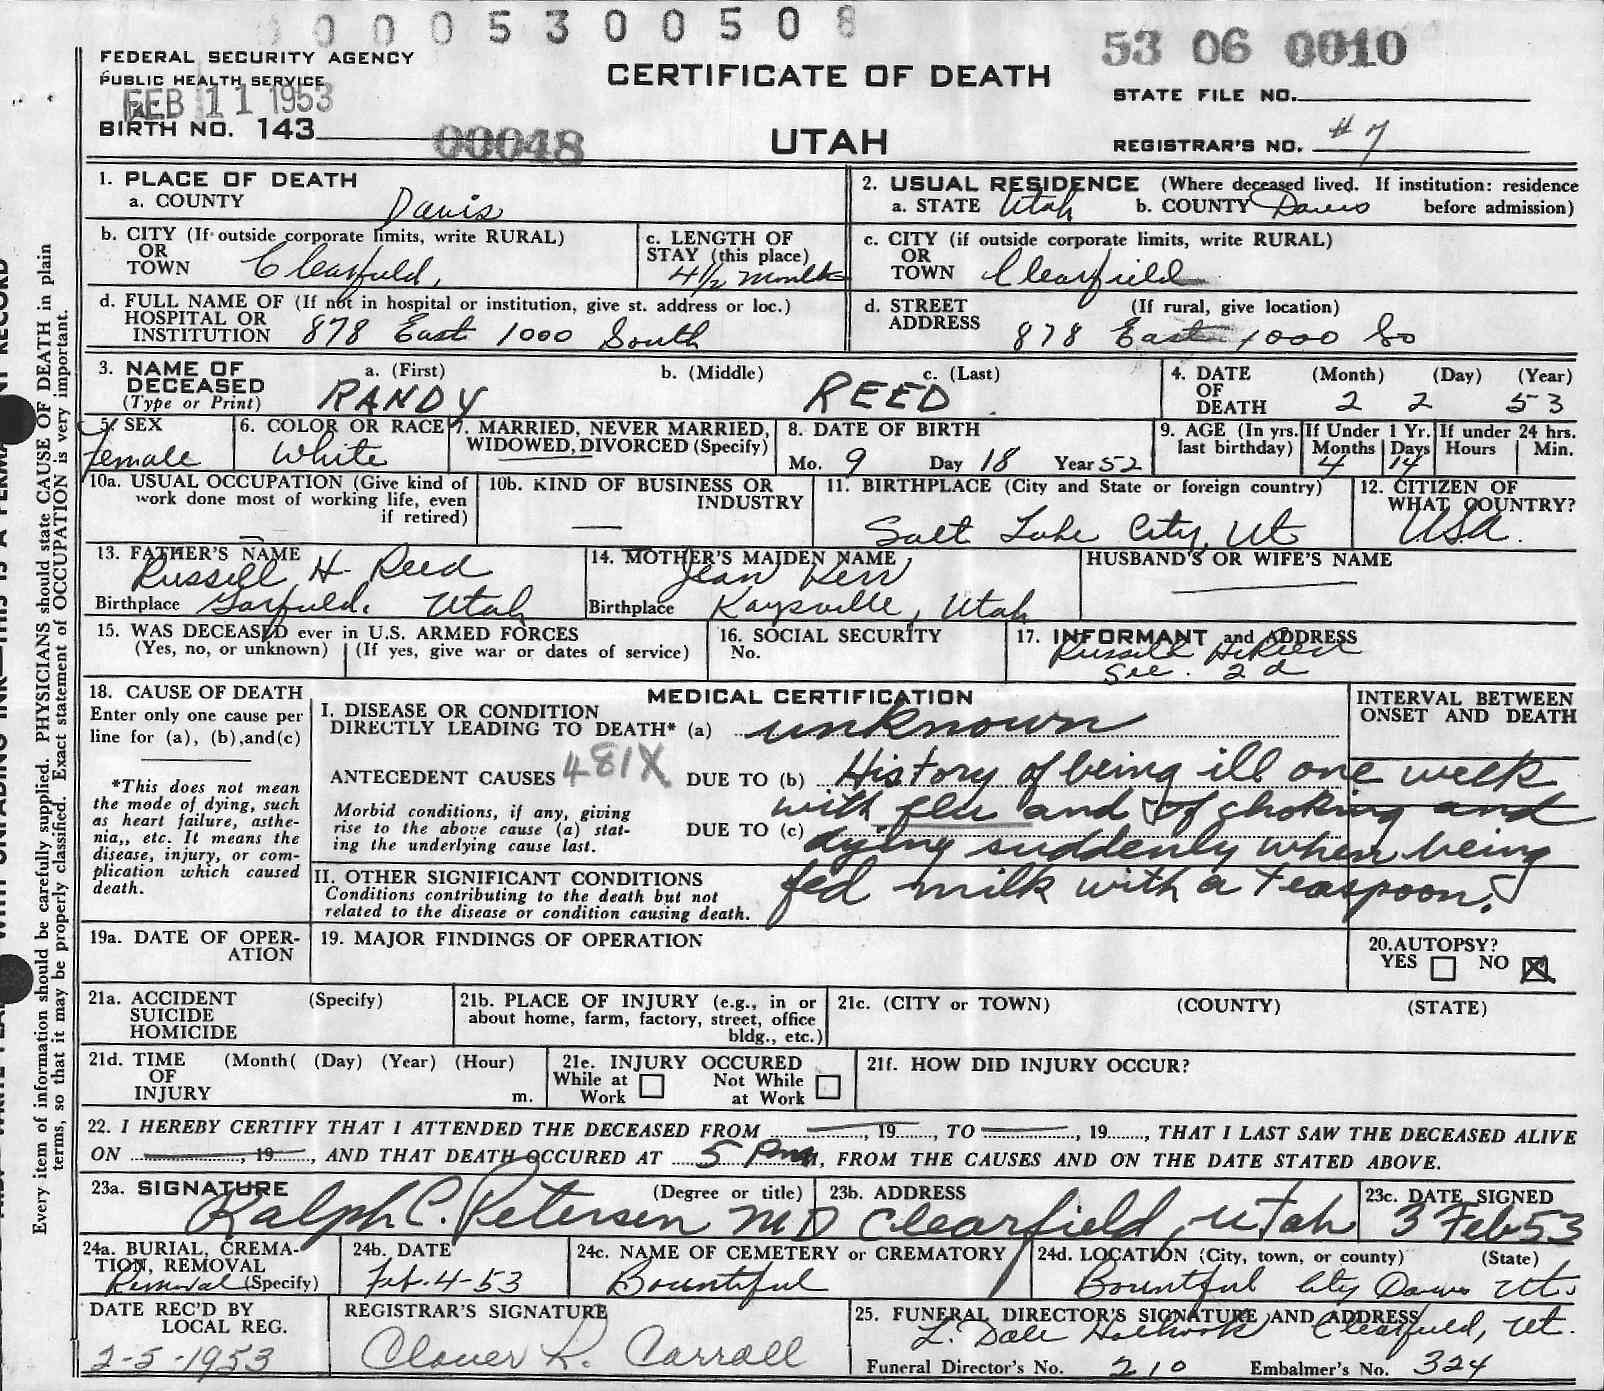 0 0 0 5 3 0 0 5 0 8
53 06 0010
FEDERAL SECURITY AGENCY
PUBLIC HEALTH SERVICE
FEB 11 1953
CERTIFICATE OF DEATH
STATE FILE NO.
BIRTH NO. 143
00048
UTAH
REGISTRAR'S NO. #7
1. PLACE OF DEATH
a. COUNTY
Davis
2. USUAL RESIDENCE (Where deceased lived. If institution: residence
a. STATE Utah b. COUNTY Davis before admission)
b. CITY (If outside corporate limits, write RURAL)
OR
TOWN Clearfield,
c. LENGTH OF
STAY (this place)
4½ months
c. CITY (if outside corporate limits, write RURAL)
OR
TOWN Clearfield
d. FULL NAME OF (If not in hospital or institution, give st. address or loc.)
HOSPITAL OR
INSTITUTION 878 East 1000 South
d. STREET (If rural, give location)
ADDRESS 878 East 1000 So
3. NAME OF a. (First) b. (Middle) c. (Last)
DECEASED
(Type or Print) RANDY REED
4. DATE (Month) (Day) (Year)
OF
DEATH 2 2 53
5. SEX
female
6. COLOR OR RACE
White
7. MARRIED, NEVER MARRIED,
WIDOWED, DIVORCED (Specify)
8. DATE OF BIRTH
Mo. 9 Day 18 Year 52
9. AGE (In yrs. If Under 1 Yr. If under 24 hrs.
last birthday) Months Days Hours Min.
4 14
10a. USUAL OCCUPATION (Give kind of
work done most of working life, even
if retired)
10b. KIND OF BUSINESS OR
INDUSTRY
—
11. BIRTHPLACE (City and State or foreign country)
Salt Lake City, Ut
12. CITIZEN OF
WHAT COUNTRY?
USA.
13. FATHER'S NAME
Russell H. Reed
Birthplace Garfield, Utah
14. MOTHER'S MAIDEN NAME
Jean Kerr
Birthplace Kaysville, Utah
HUSBAND'S OR WIFE'S NAME
15. WAS DECEASED ever in U.S. ARMED FORCES
(Yes, no, or unknown) (If yes, give war or dates of service)
16. SOCIAL SECURITY
No.
17. INFORMANT and ADDRESS
Russell H. Reed
See. 2d
18. CAUSE OF DEATH
Enter only one cause per
line for (a), (b), and (c)
*This does not mean
the mode of dying, such
as heart failure, asthe-
nia,, etc. It means the
disease, injury, or com-
plication which caused
death.
MEDICAL CERTIFICATION
INTERVAL BETWEEN
ONSET AND DEATH
I. DISEASE OR CONDITION
DIRECTLY LEADING TO DEATH* (a) unknown
ANTECEDENT CAUSES 481X DUE TO (b) History of being ill one week
Morbid conditions, if any, giving
rise to the above cause (a) stat-
ing the underlying cause last.
with flu and of choking and
DUE TO (c) dying suddenly when being
fed milk with a teaspoon.
II. OTHER SIGNIFICANT CONDITIONS
Conditions contributing to the death but not
related to the disease or condition causing death.
19a. DATE OF OPER-
ATION
19. MAJOR FINDINGS OF OPERATION
20. AUTOPSY?
YES NO X
21a. ACCIDENT (Specify)
SUICIDE
HOMICIDE
21b. PLACE OF INJURY (e.g., in or
about home, farm, factory, street, office
bldg., etc.)
21c. (CITY or TOWN) (COUNTY) (STATE)
21d. TIME (Month( (Day) (Year) (Hour)
OF
INJURY m.
21e. INJURY OCCURED
While at Not While
Work at Work
21f. HOW DID INJURY OCCUR?
22. I HEREBY CERTIFY THAT I ATTENDED THE DECEASED FROM , 19 , TO , 19 , THAT I LAST SAW THE DECEASED ALIVE
ON , 19 , AND THAT DEATH OCCURED AT 5 P.m., FROM THE CAUSES AND ON THE DATE STATED ABOVE.
23a. SIGNATURE (Degree or title)
Ralph C. Petersen MD
23b. ADDRESS
Clearfield, Utah
23c. DATE SIGNED
3 Feb 53
24a. BURIAL, CREMA-
TION, REMOVAL
Removal (Specify)
24b. DATE
Feb. 4-53
24c. NAME OF CEMETERY or CREMATORY
Bountiful
24d. LOCATION (City, town, or county) (State)
Bountiful City Davis Ut.
DATE REC'D BY
LOCAL REG.
2-5-1953
REGISTRAR'S SIGNATURE
Clover R. Carroll
25. FUNERAL DIRECTOR'S SIGNATURE AND ADDRESS
L. Dale Holbrook Clearfield, Ut.
Funeral Director's No. 210 Embalmer's No. 324
Every item of information should be carefully supplied. PHYSICIANS should state CAUSE OF DEATH in plain
terms, so that it may be properly classified. Exact statement of OCCUPATION is very important.